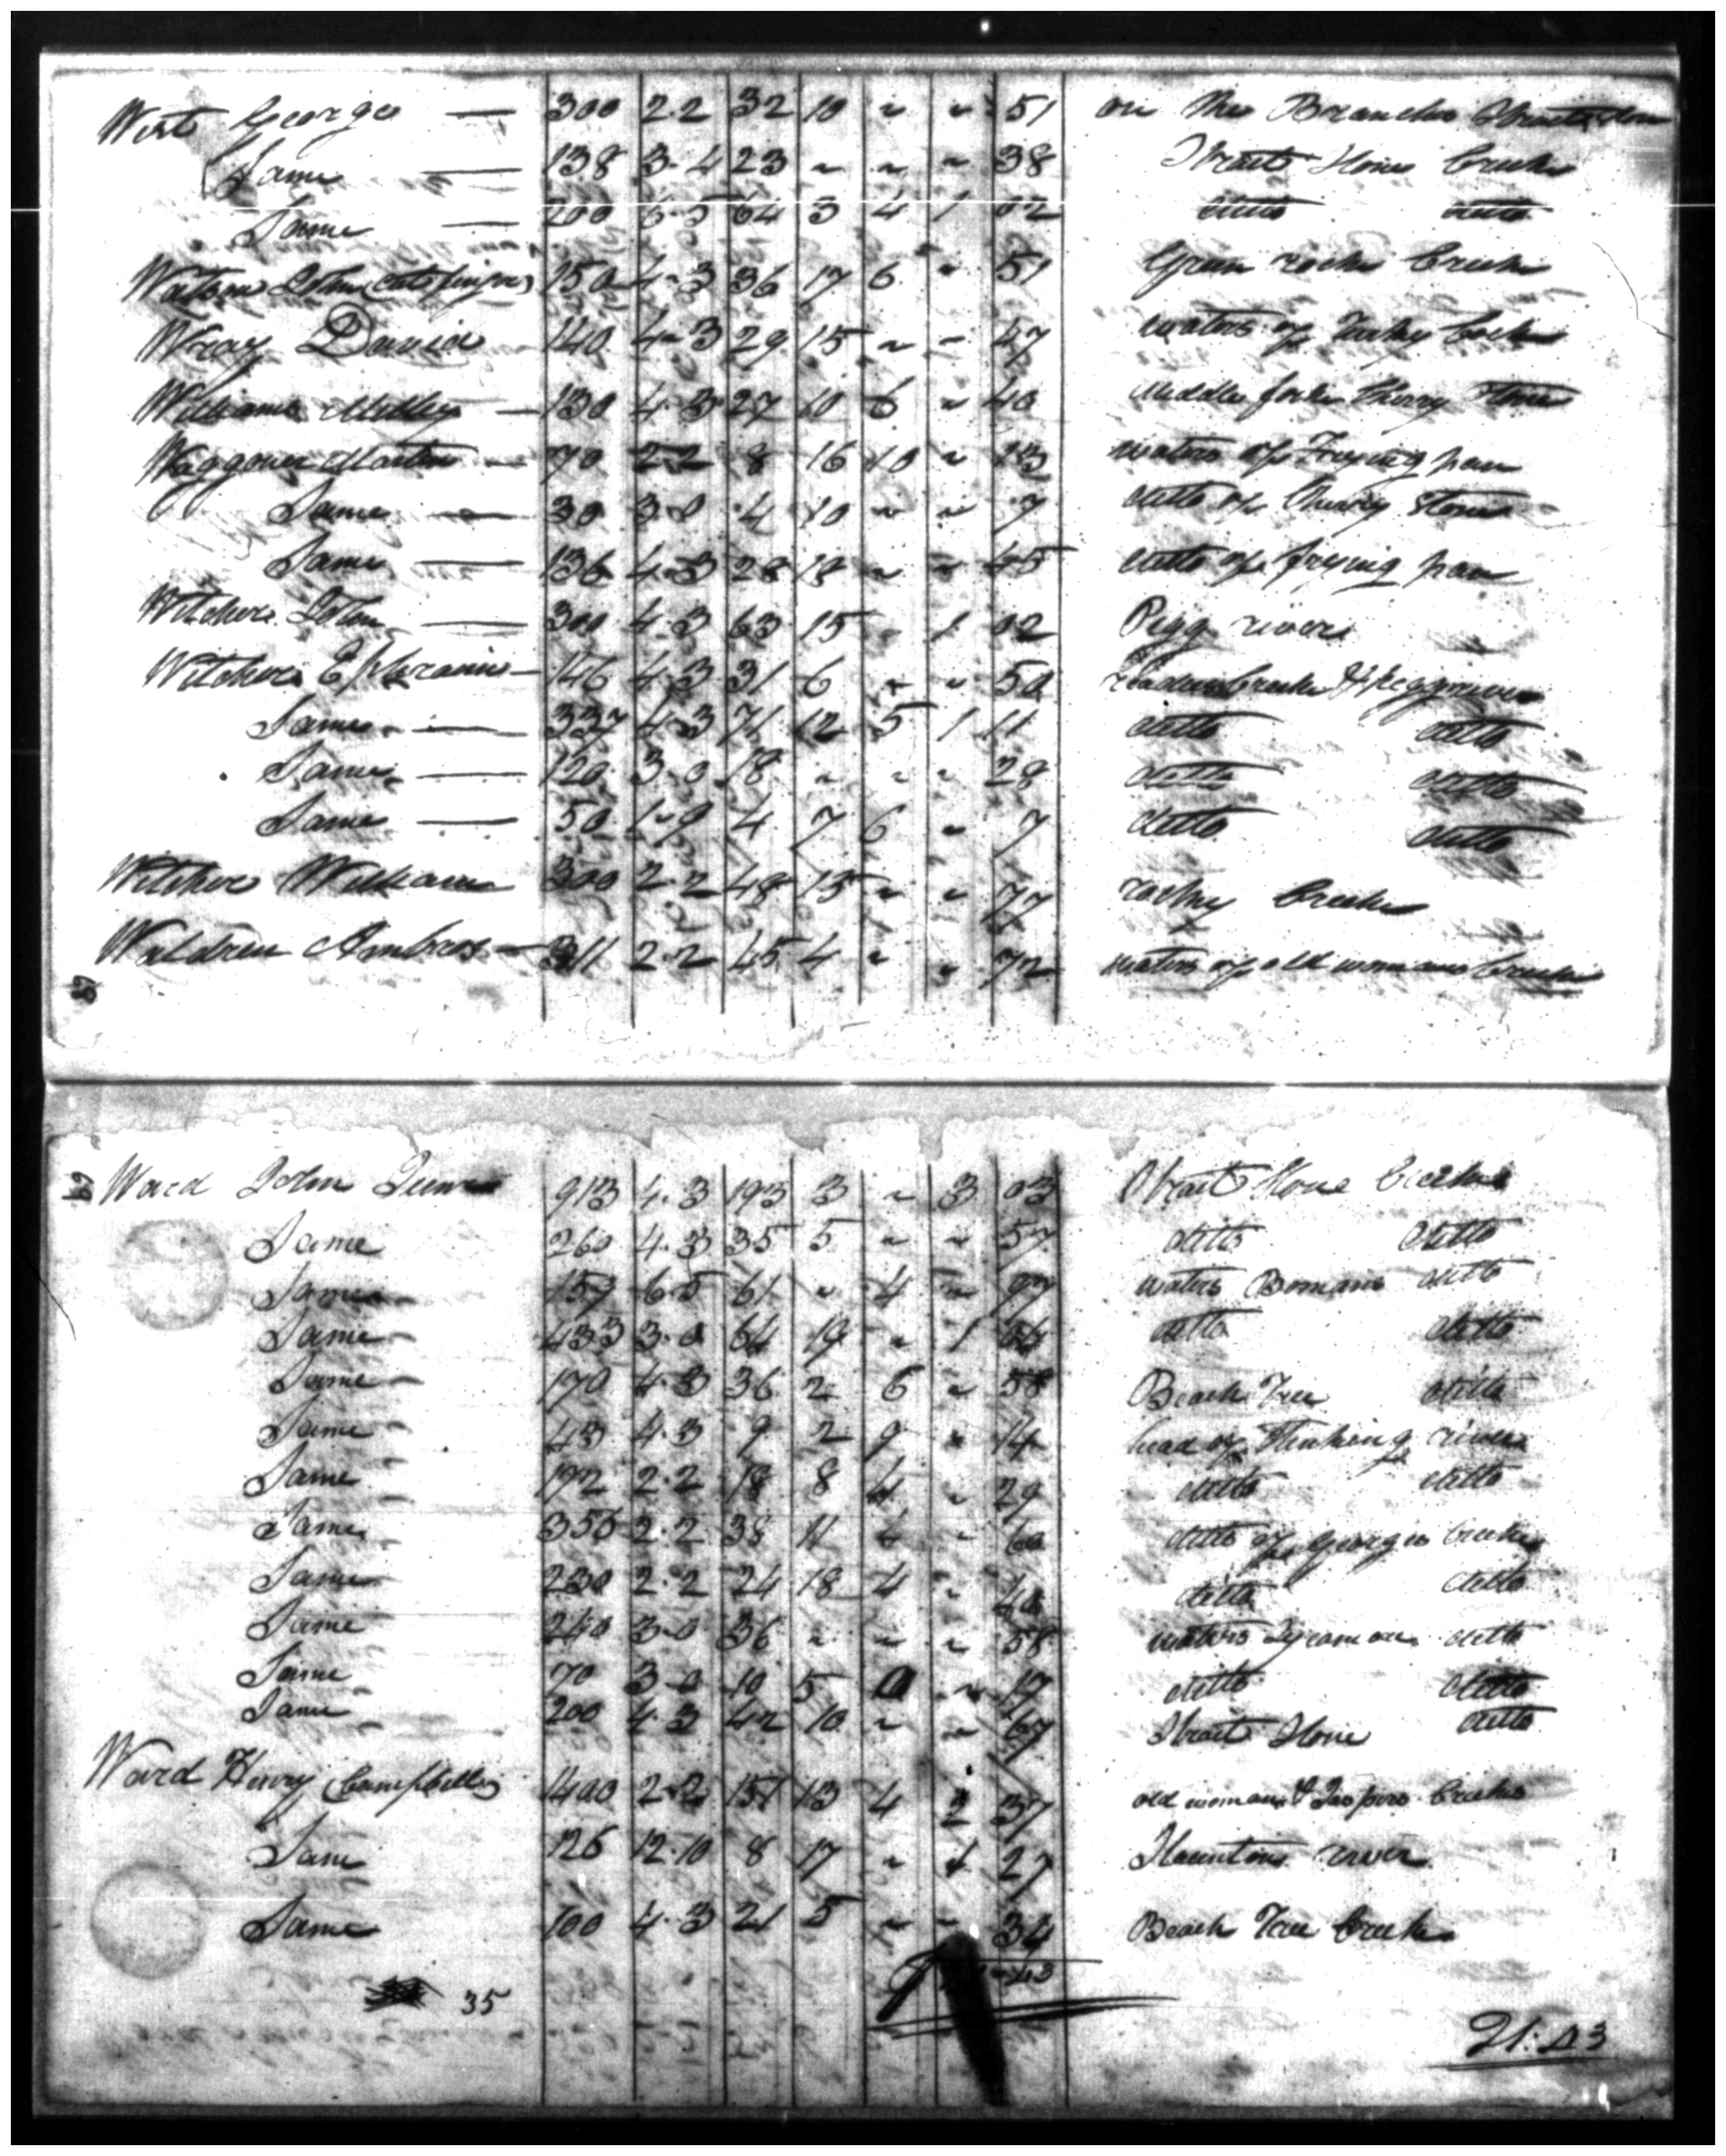 West George — 300 2.2 32 10 " " 51 on the Branches Strait Stone
Same — 138 3.4 23 " " " 38 Strait Stone Creek
Same — 200 6.5 64 3 4 1 02 ditto ditto
Watson John 150 4.3 36 17 6 " 51 Green rock Creek
Wray David 140 4.3 29 15 " " 47 waters of
Williams — 130 4.3 27 10 6 " 40 Middle fork Cherry Stone
Waggoner Martin — 70 2.2 8 16 10 " 13 waters of Frying pan
Same — 30 3.0 4 10 " " 7 ditto of Cherry Stone
Same — 136 4.3 28 18 " " 45 ditto of frying pan
Witcher John — 300 4.3 63 15 1 02 Pigg river
Witcher Ephraim — 146 4.3 31 6 " " 50 Creek & Pigg river
Same — 337 4.3 71 12 5 1 11 ditto ditto
Same — 120 3.0 18 " " " 28 ditto ditto
Same — 50 4 7 6 " 7 ditto ditto
Witcher William 300 2.2 48 15 " " 77 Creek
Waldren Ambros — 311 2.2 45 4 " " 72 waters of old womans Creek
69
69 Ward John 913 4.3 193 3 " 3 03 Strait Stone Creek
Same 260 4.3 35 5 " " 57 ditto ditto
Same 157 6.5 61 " 4 " 97 waters Bomans ditto
Same 433 3.0 64 19 " 1 ditto ditto
Same 170 4.3 36 2 6 " 58 Beach Tree ditto
Same 43 4.3 9 2 9 " 14 head of Stinking river
Same 172 2.2 18 8 4 " 29 ditto ditto
Same 356 2.2 38 11 4 " 60 ditto of Georges Creek
Same 230 2.2 24 18 4 " 40 ditto ditto
Same 240 3.0 36 " " " 58 waters Sycamore ditto
Same 70 3.0 10 5 " 17 ditto ditto
Same 200 4.3 42 10 " " 67 Strait Stone ditto
Ward Henry (Campbell) 1400 2.2 151 13 4 2 37 old woman & Creeks
Same 126 12.10 8 17 " 1 27 Staunton river
Same 100 4.3 21 5 " " 34 Beach Tree Creek
35
21:43